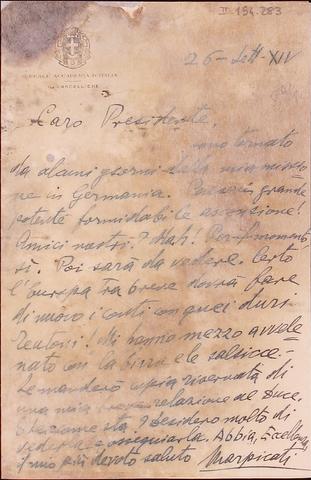 II 194.283
REALE ACCADEMIA D'ITALIA
IL CANCELLIERE
26 - Sett - XIV
Caro Presidente,
sono tornato
da alcuni giorni dalla mia missio
ne in Germania. Paese in grande
potente formidabile ascensione!
Amici nostri? Mah! Per il momento
sì. Poi sarà da vedere. Certo
l'Europa tra breve dovrà fare
di nuovo i conti con quei duri
Teutoni! Mi hanno mezzo avvele
nato con la birra e le salsicce. -
Le manderò copia riservata di
una mia relazione al Duce.
sta? Desidero molto di
vederla e ossequiarla. Abbia, Eccellenza,
il mio più devoto saluto Marpicati